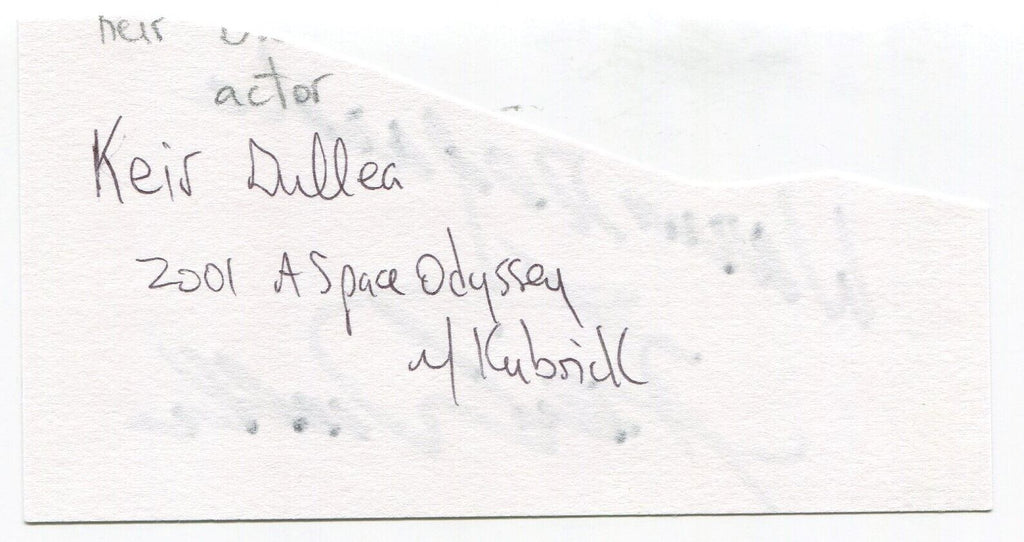 actor
Keir Dullea
2001 A Space Odyssey
w/ Kubrick